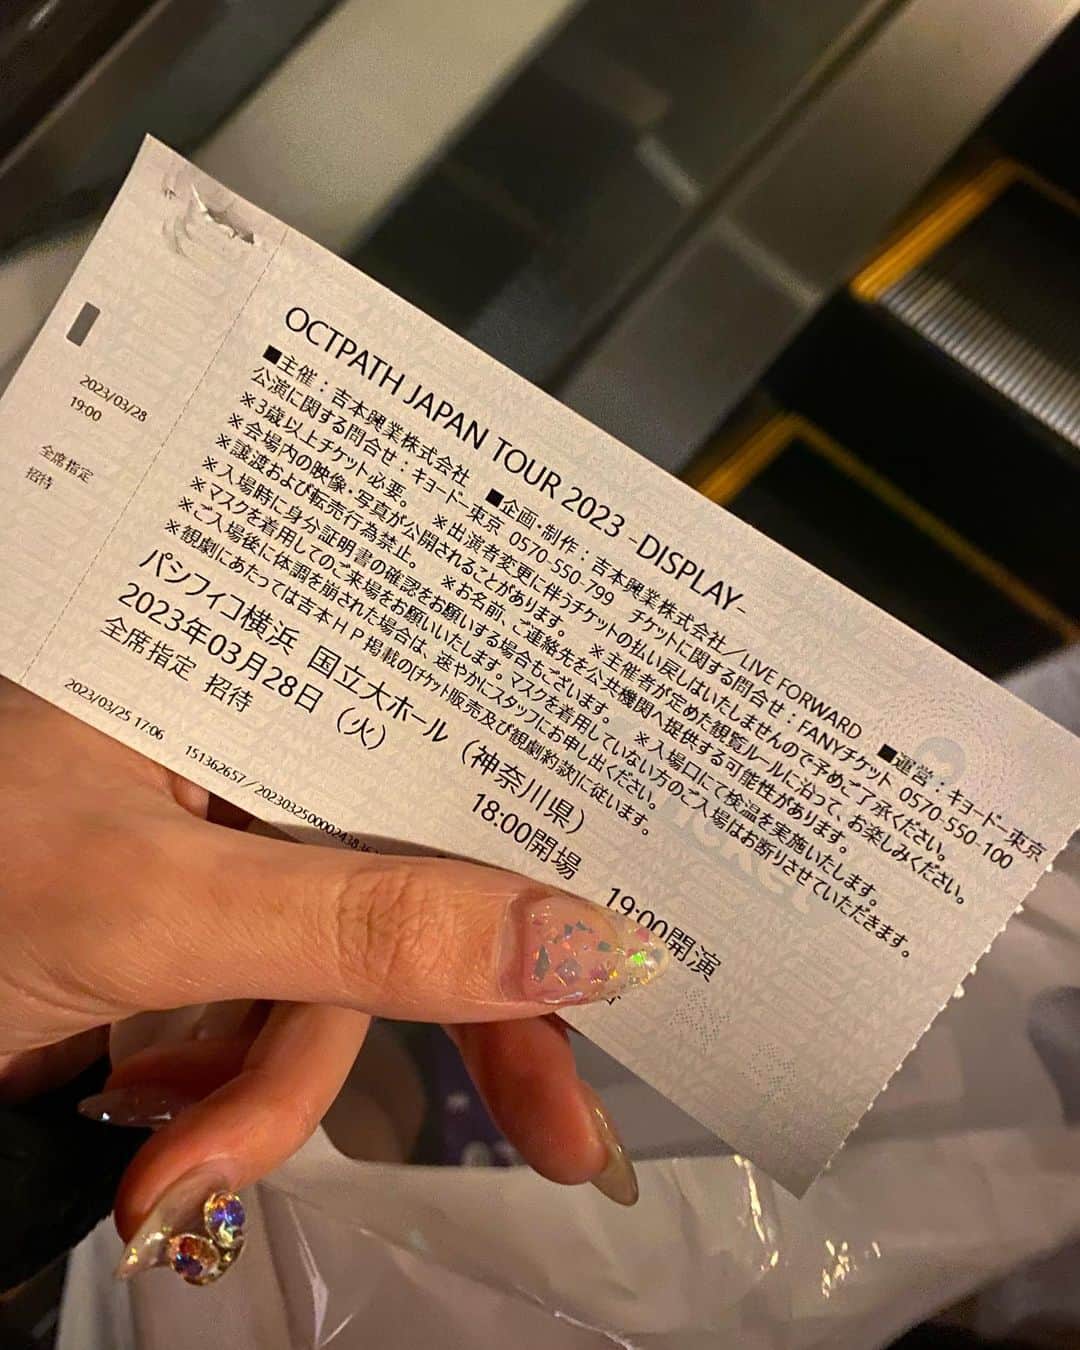 2023/03/28
19:00
全席指定
招待
OCTPATH JAPAN TOUR 2023 -DISPLAY-
■主催：吉本興業株式会社　■企画・制作：吉本興業株式会社／LIVE FORWARD　■運営：キョードー東京
公演に関する問合せ：キョードー東京 0570-550-799　チケットに関する問合せ：FANYチケット 0570-550-100
※3歳以上チケット必要。　※出演者変更に伴うチケットの払い戻しはいたしませんので予めご了承ください。
※会場内の映像・写真が公開されることがあります。　※主催者が定めた観覧ルールに沿って、お楽しみください。
※譲渡および転売行為禁止。　※お名前、ご連絡先を公共機関へ提供する可能性があります。
※入場時に身分証明書の確認をお願いする場合もございます。　※入場口にて検温を実施いたします。
※マスクを着用してのご来場をお願いいたします。マスクを着用していない方のご入場はお断りさせていただきます。
※ご入場後に体調を崩された場合は、速やかにスタッフにお申し出ください。
※観劇にあたっては吉本HP掲載の[チケット販売及び観劇約款]に従います。
パシフィコ横浜 国立大ホール（神奈川県）
2023年03月28日（火）　18:00開場　19:00開演
全席指定 招待
2023/03/25 17:06　151362657／202303250000243836